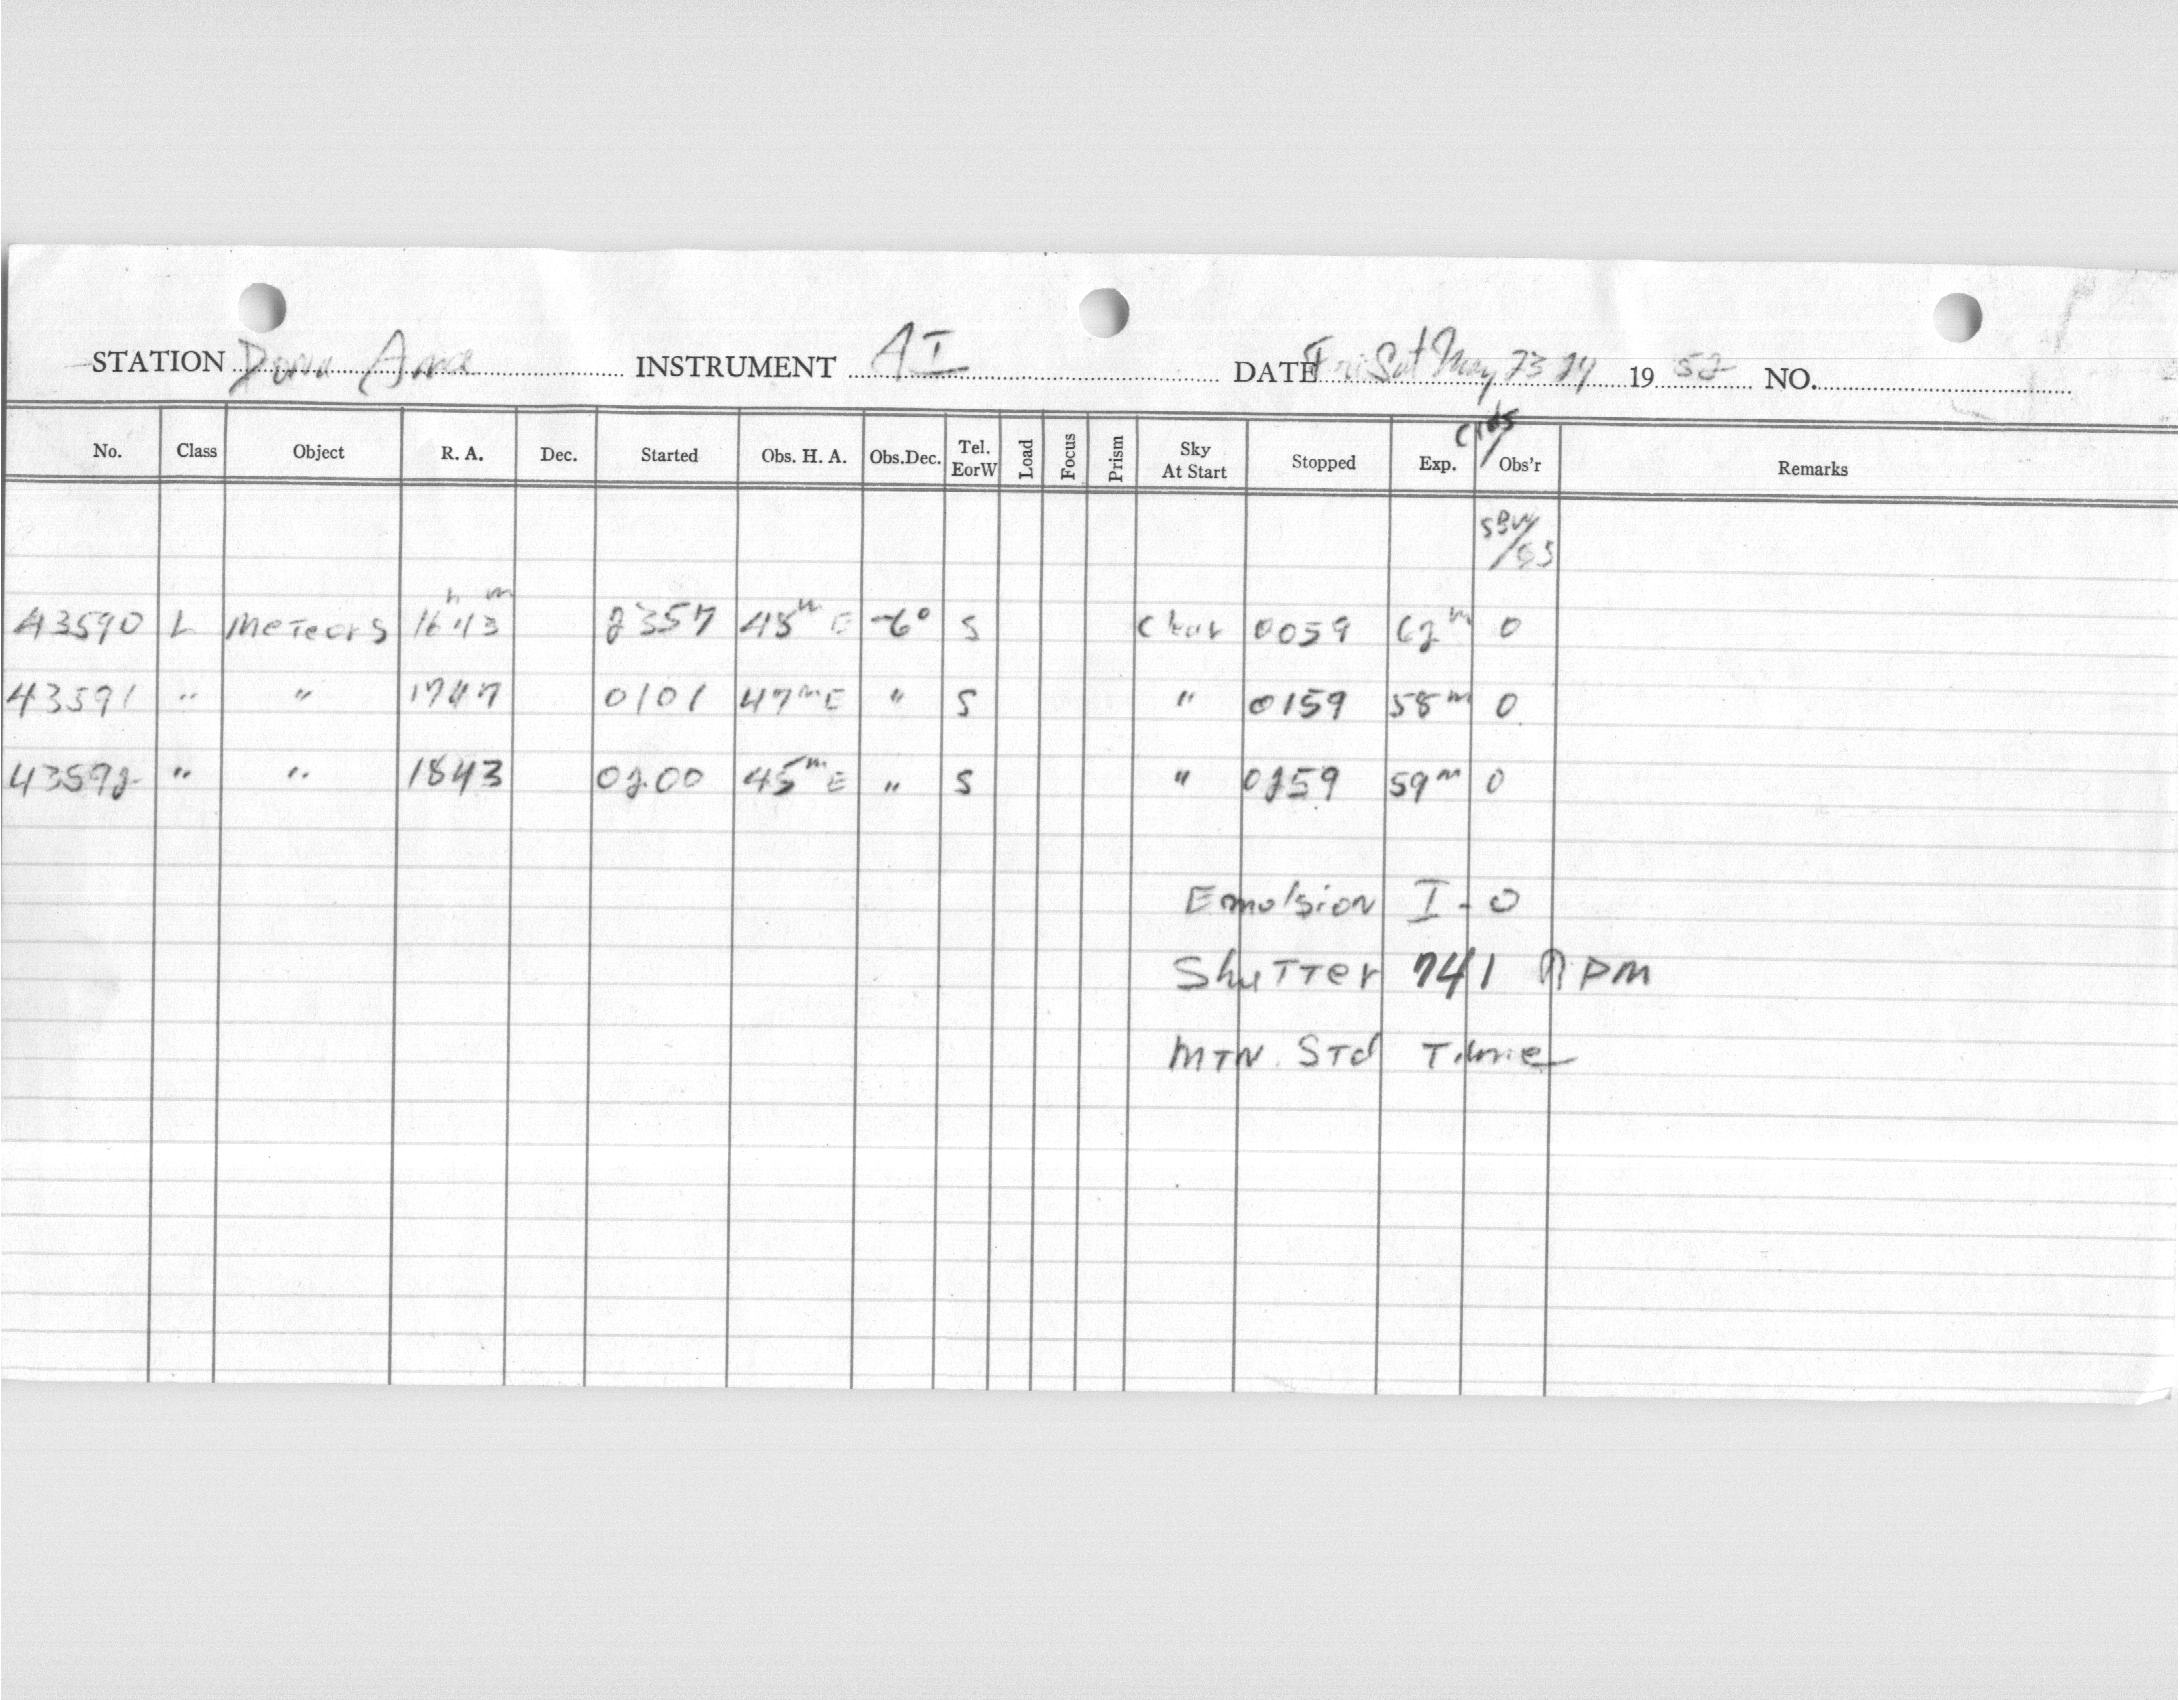 STATION Dona Ana INSTRUMENT AI DATE Fri Sat May 23 24 19 52 NO.
No. Class Object R. A. Dec. Started Obs. H. A. Obs.Dec. Tel. EorW Load Focus Prism Sky At Start Stopped Exp. Obs'r Remarks
SBW/
43590 L Meteors 16h 43m 2357 48m E -6° S Clear 0059 62m 0
43591 " " 1747 0101 47m E " S " 0159 58m 0
43592 " " 1843 0200 45m E " S " 0259 59m 0
Emulsion I-0
Shutter 741 RPM
MTN. STd Time